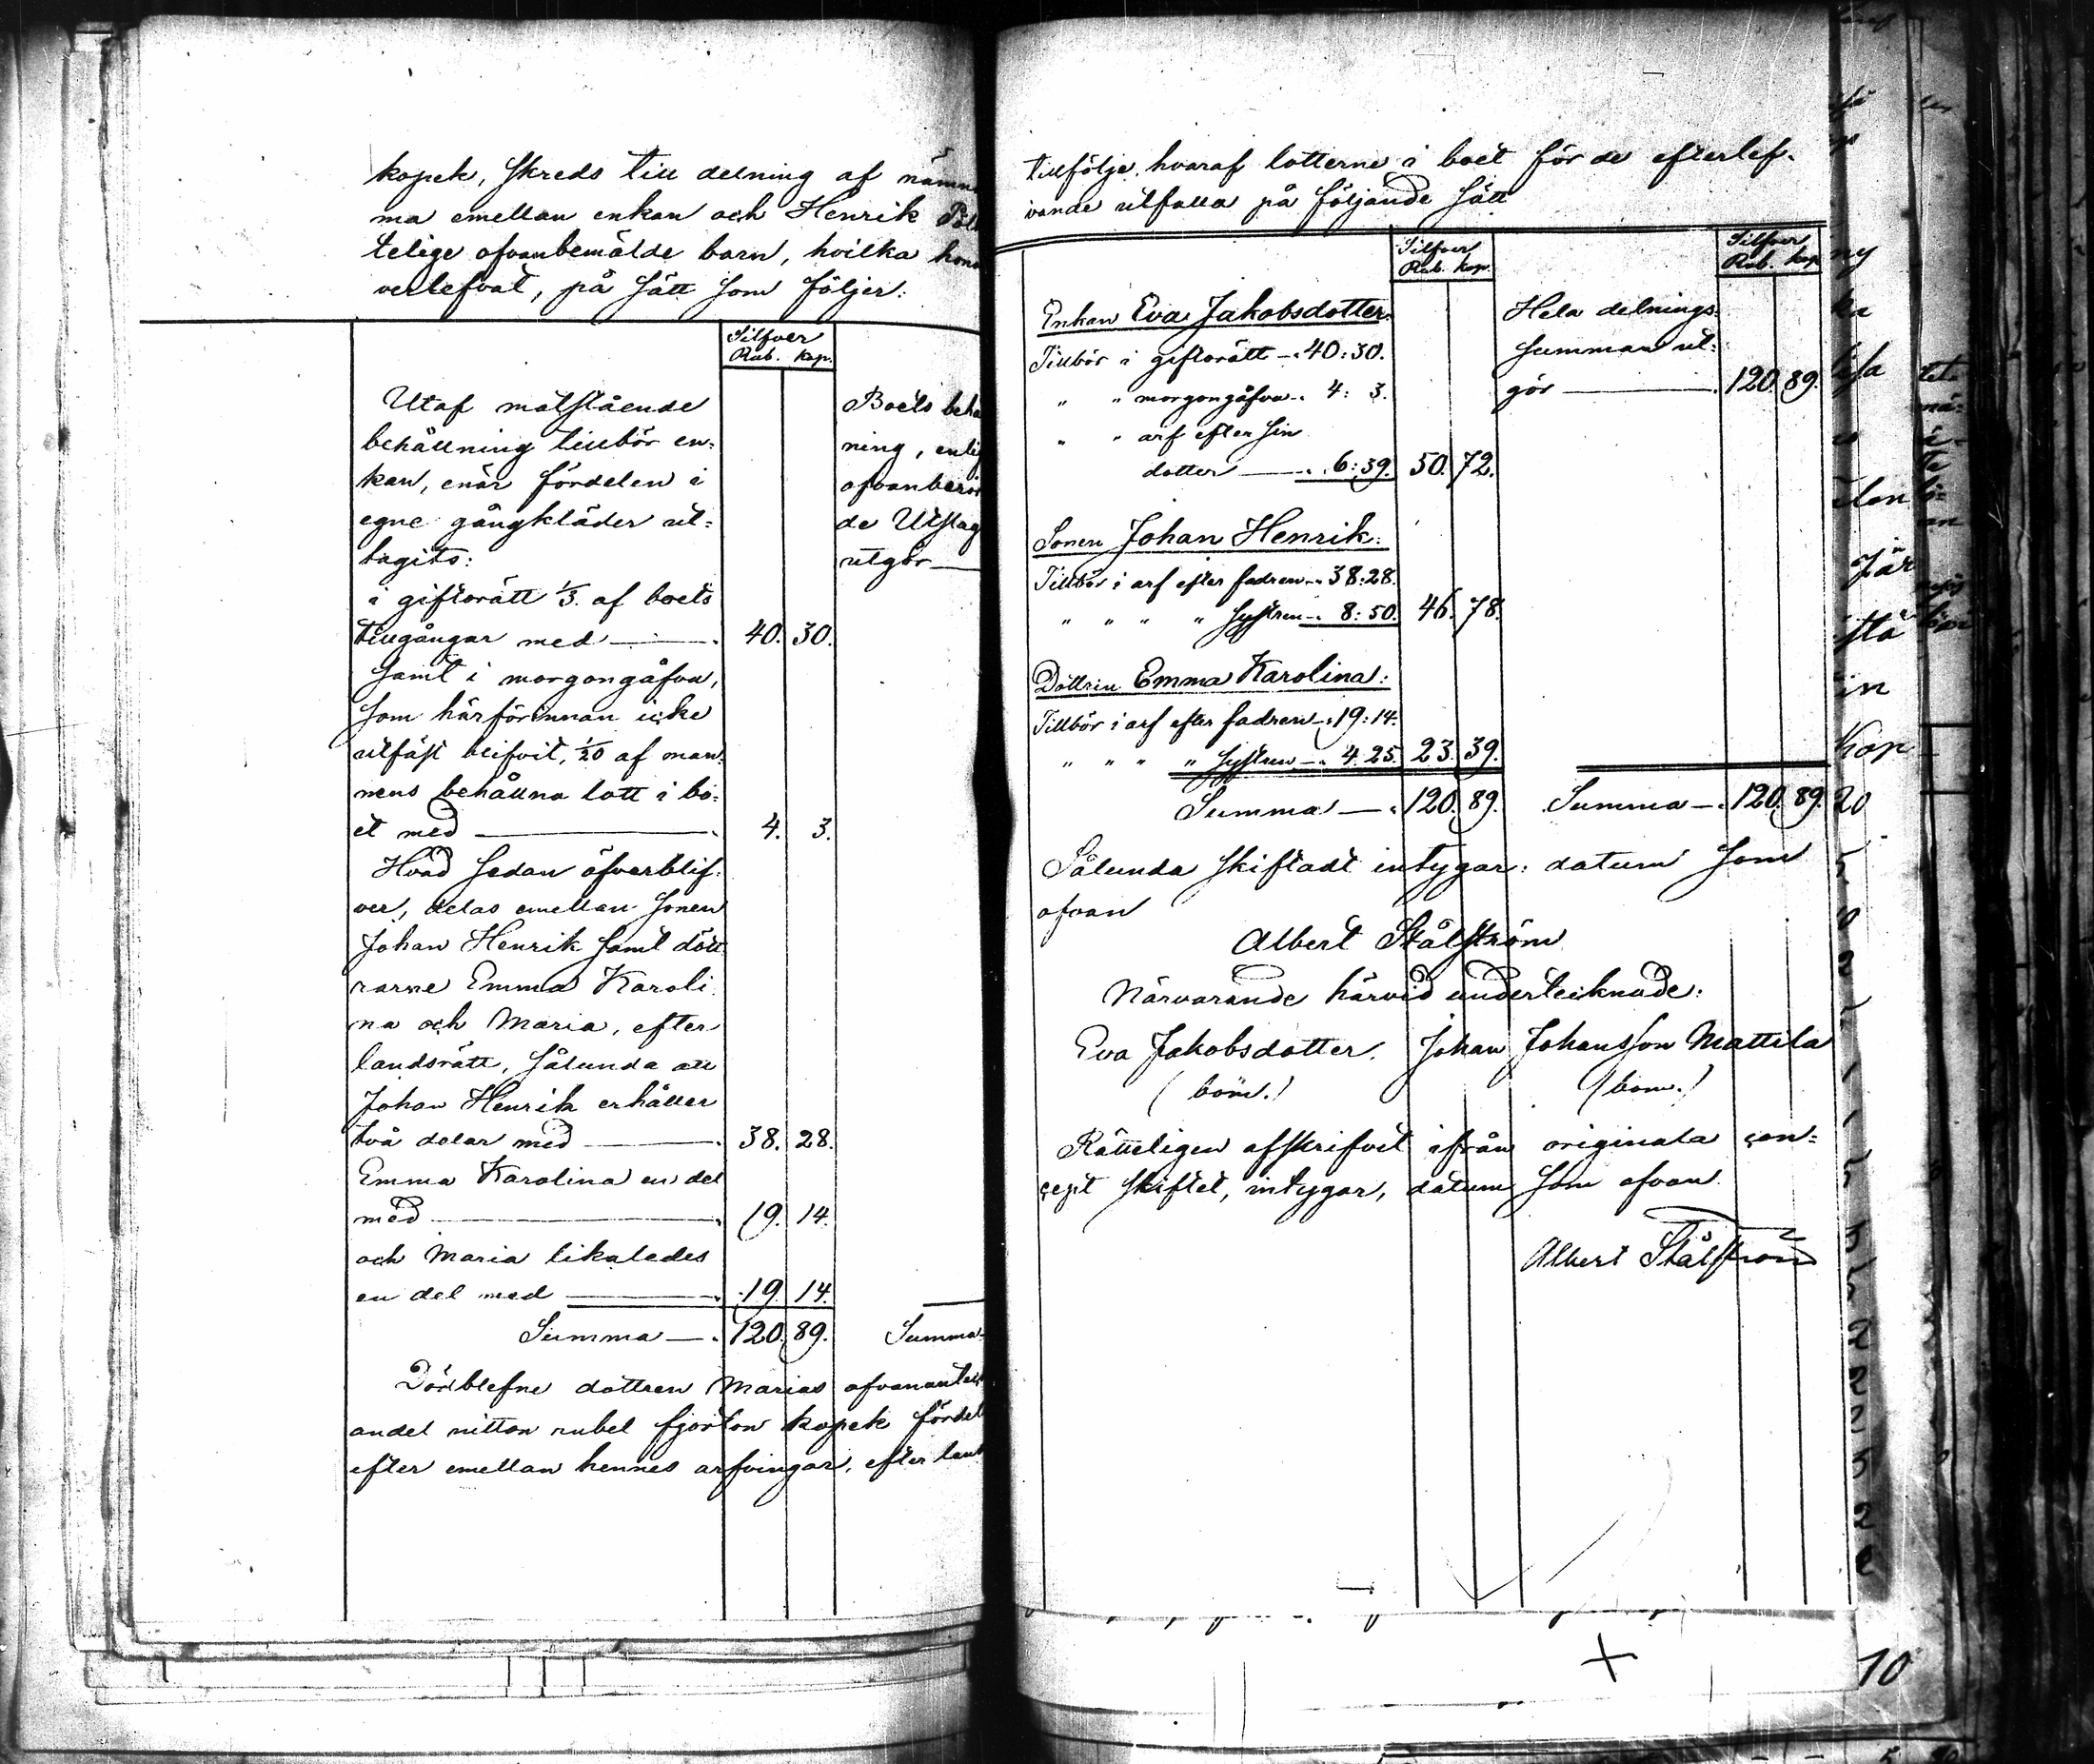 kopek, skreds till delning af
ma emellan enkan och Henrik
telige ofvanbemälde barn, hvilka
verlefvat, på sätt som följer:
Silfver
Rub. kop.
Utaf motstående
behållning tillbör en-
kan, enär fördelen i
egne gångkläder ut-
tagits:
i giftorätt 1/3. af boets
tillgångar med — 40. 30.
samt i morgongåfva,
som härförinnan icke
utfäst blifvit, 1/20 af man-
nens behållna lott i bo-
et med — 4. 3.
Hvad sedan öfverblif-
ver, delas emellan sonen
Johan Henrik samt dött-
rarne Emma Karoli-
na och Maria, efter
landsrätt, sålunda att
Johan Henrik erhåller
två delar med — 38. 28.
Emma Karolina en del
med — 19. 14.
och Maria likaledes
en del med — 19. 14.
Summa — 120. 89.
Boets
ning,
de
utgör —
Summa —
Dödblefne dottren Marias
andel nitton rubel fjorton kopek
efter emellan hennes arfvingar, efter
tillfölje hvaraf lotterne i boet för de efterlef-
vande utfalla på följande sätt
Silfver
Rub. kop.
Silfver
Rub. kop
Enkan Eva Jakobsdotter.
Tillbör i giftorätt — 40: 30.
" " morgongåfva — 4: 3.
" " arf efter sin
dotter — 6: 39. 50. 72.
Hela delnings-
summan ut-
gör — 120. 89.
Sonen Johan Henrik:
Tillbör i arf efter fadren — 38: 28.
" " " " systren — 8: 50. 46. 78.
Dottren Emma Karolina:
Tillbör i arf efter fadren — 19: 14.
" " " " systren — 4. 25. 23. 39.
Summa — 120. 89. Summa — 120. 89.
Sålunda skiftadt intygar: datum som
ofvan
Albert Stålström
Närvarande härvid undertecknade:
Eva Jakobsdotter. Johan Johansson Mattila
(bom.) (bom.)
Rätteligen afskrifvit ifrån originala con-
cept skiftet, intygar, datum som ofvan.
Albert Stålström
10